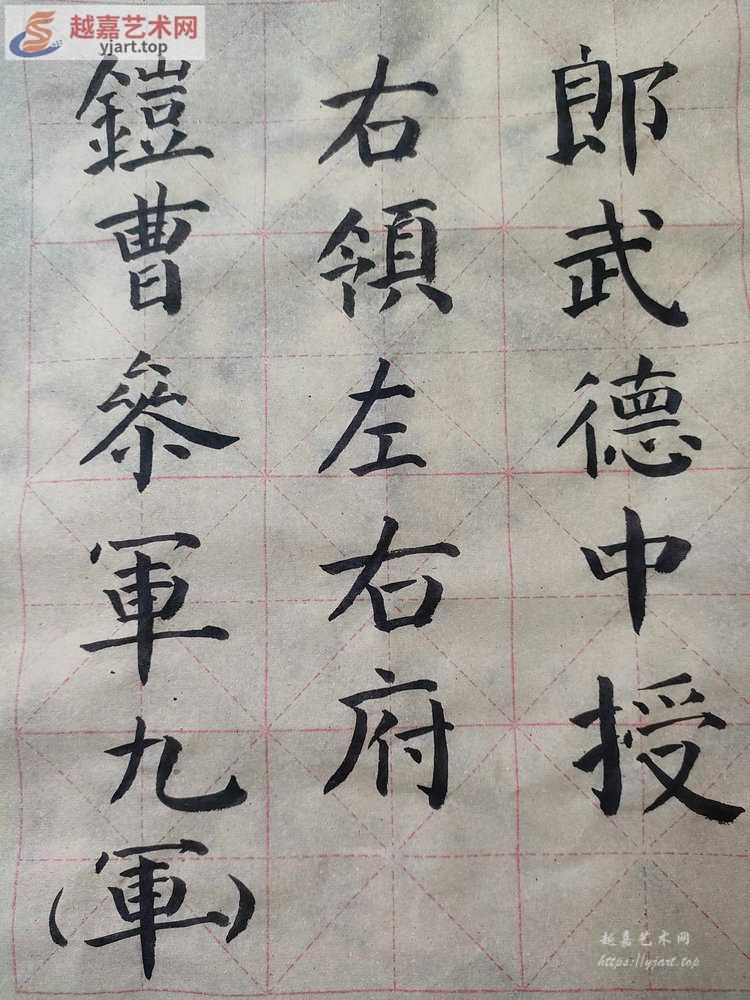 越嘉艺术网
yjart.top
郎武德中授
右領左右府
鎧曹叅軍九
（軍）
越嘉艺术网
https://yjart.top